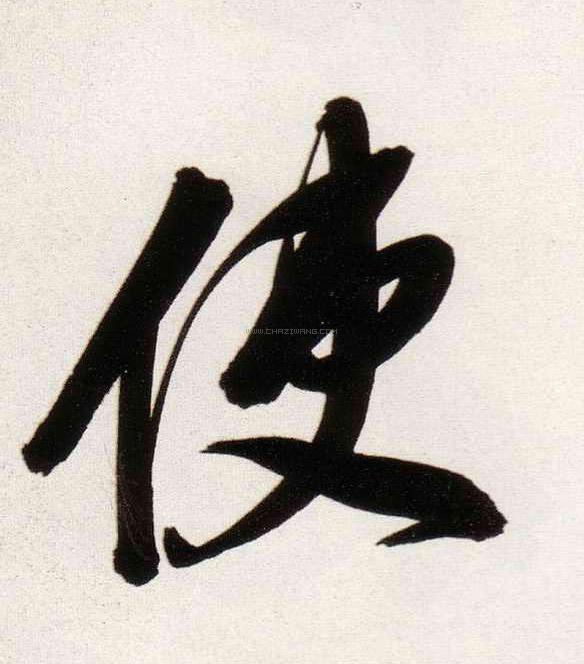 使
WWW.CHAZIWANG.COM